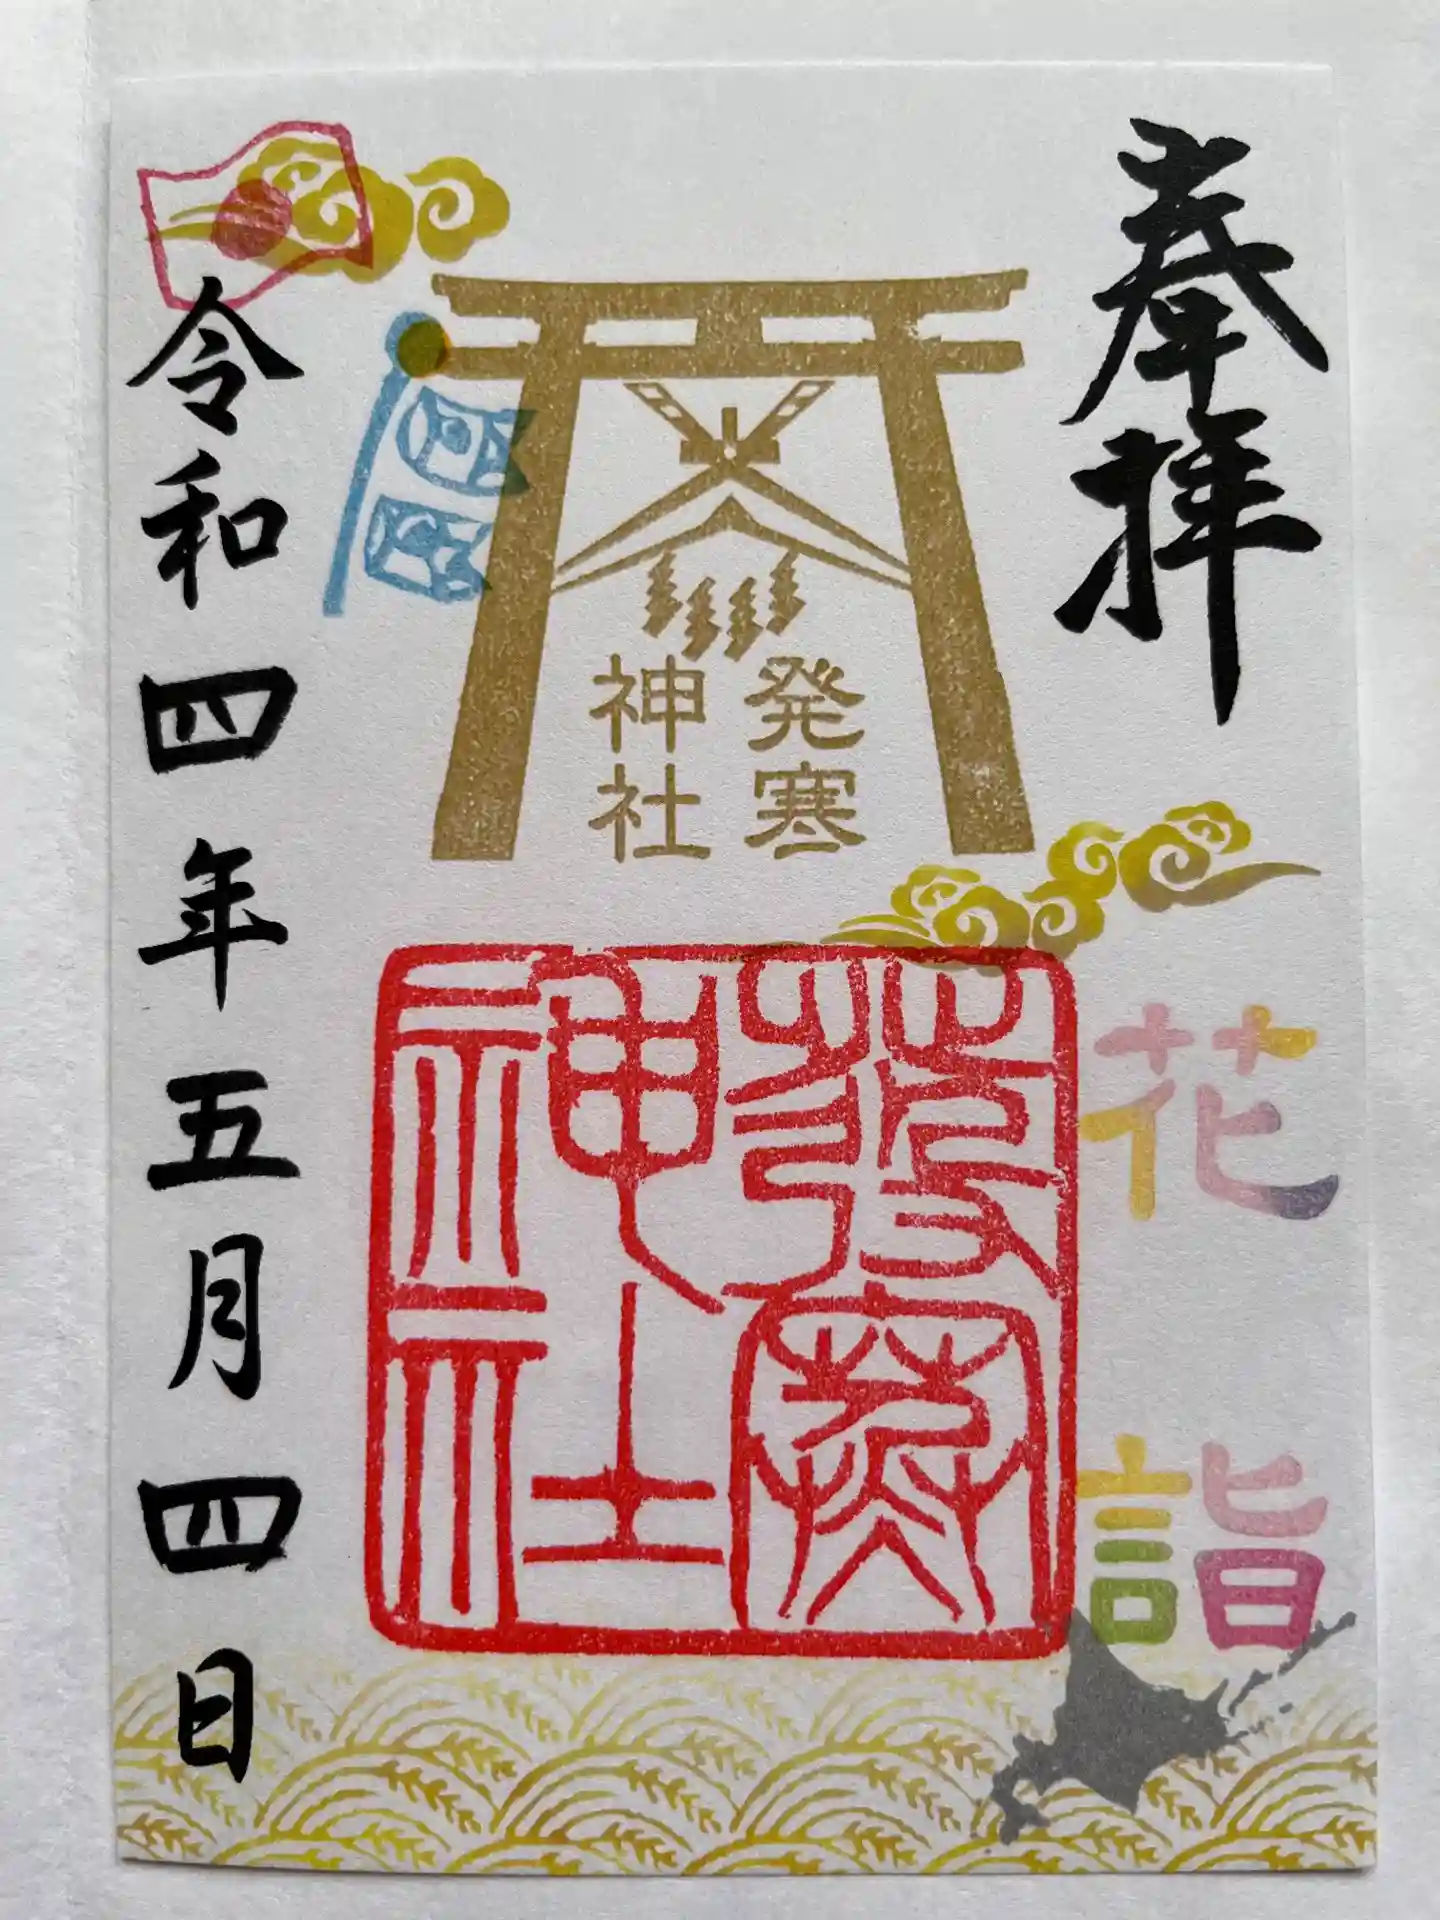 奉拝
花詣
発寒
神社
發寒
神社
令和四年五月四日